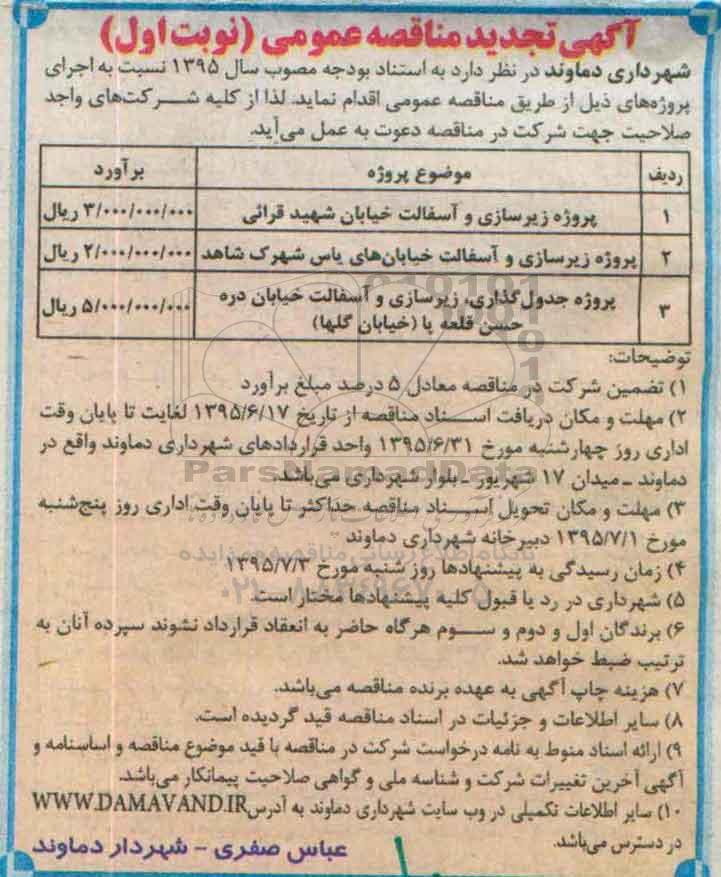 آگهی تجدید مناقصه عمومی (نوبت اول)
شهرداری دماوند در نظر دارد به استناد بودجه مصوب سال ۱۳۹۵ نسبت به اجرای
پروژه‌های ذیل از طریق مناقصه عمومی اقدام نماید. لذا از کلیه شرکت‌های واجد
صلاحیت جهت شرکت در مناقصه دعوت به عمل می‌آید.
ردیف موضوع پروژه برآورد
۱ پروژه زیرسازی و آسفالت خیابان شهید قرائی ۳/۰۰۰/۰۰۰/۰۰۰ ریال
۲ پروژه زیرسازی و آسفالت خیابان‌های یاس شهرک شاهد ۲/۰۰۰/۰۰۰/۰۰۰ ریال
۳ پروژه جدول‌گذاری، زیرسازی و آسفالت خیابان دره
حسن قلعه پا (خیابان گلها) ۵/۰۰۰/۰۰۰/۰۰۰ ریال
توضیحات:
۱) تضمین شرکت در مناقصه معادل ۵ درصد مبلغ برآورد
۲) مهلت و مکان دریافت اسناد مناقصه از تاریخ ۱۳۹۵/۶/۱۷ لغایت تا پایان وقت
اداری روز چهارشنبه مورخ ۱۳۹۵/۶/۳۱ واحد قراردادهای شهرداری دماوند واقع در
دماوند ـ میدان ۱۷ شهریور ـ بلوار شهرداری می‌باشد.
ParsNamadData
۳) مهلت و مکان تحویل اسناد مناقصه حداکثر تا پایان وقت اداری روز پنج‌شنبه
مورخ ۱۳۹۵/۷/۱ دبیرخانه شهرداری دماوند
پایگاه اطلاع رسانی مناقصه و مزایده
۴) زمان رسیدگی به پیشنهادها روز شنبه مورخ ۱۳۹۵/۷/۳
۵) شهرداری در رد یا قبول کلیه پیشنهادها مختار است.
۶) برندگان اول و دوم و سوم هرگاه حاضر به انعقاد قرارداد نشوند سپرده آنان به
ترتیب ضبط خواهد شد.
۷) هزینه چاپ آگهی به عهده برنده مناقصه می‌باشد.
۸) سایر اطلاعات و جزئیات در اسناد مناقصه قید گردیده است.
۹) ارائه اسناد منوط به نامه درخواست شرکت در مناقصه با قید موضوع مناقصه و اساسنامه و
آگهی آخرین تغییرات شرکت و شناسه ملی و گواهی صلاحیت پیمانکار می‌باشد.
۱۰) سایر اطلاعات تکمیلی در وب سایت شهرداری دماوند به آدرس WWW.DAMAVAND.IR
در دسترس می‌باشد.
عباس صفری - شهردار دماوند